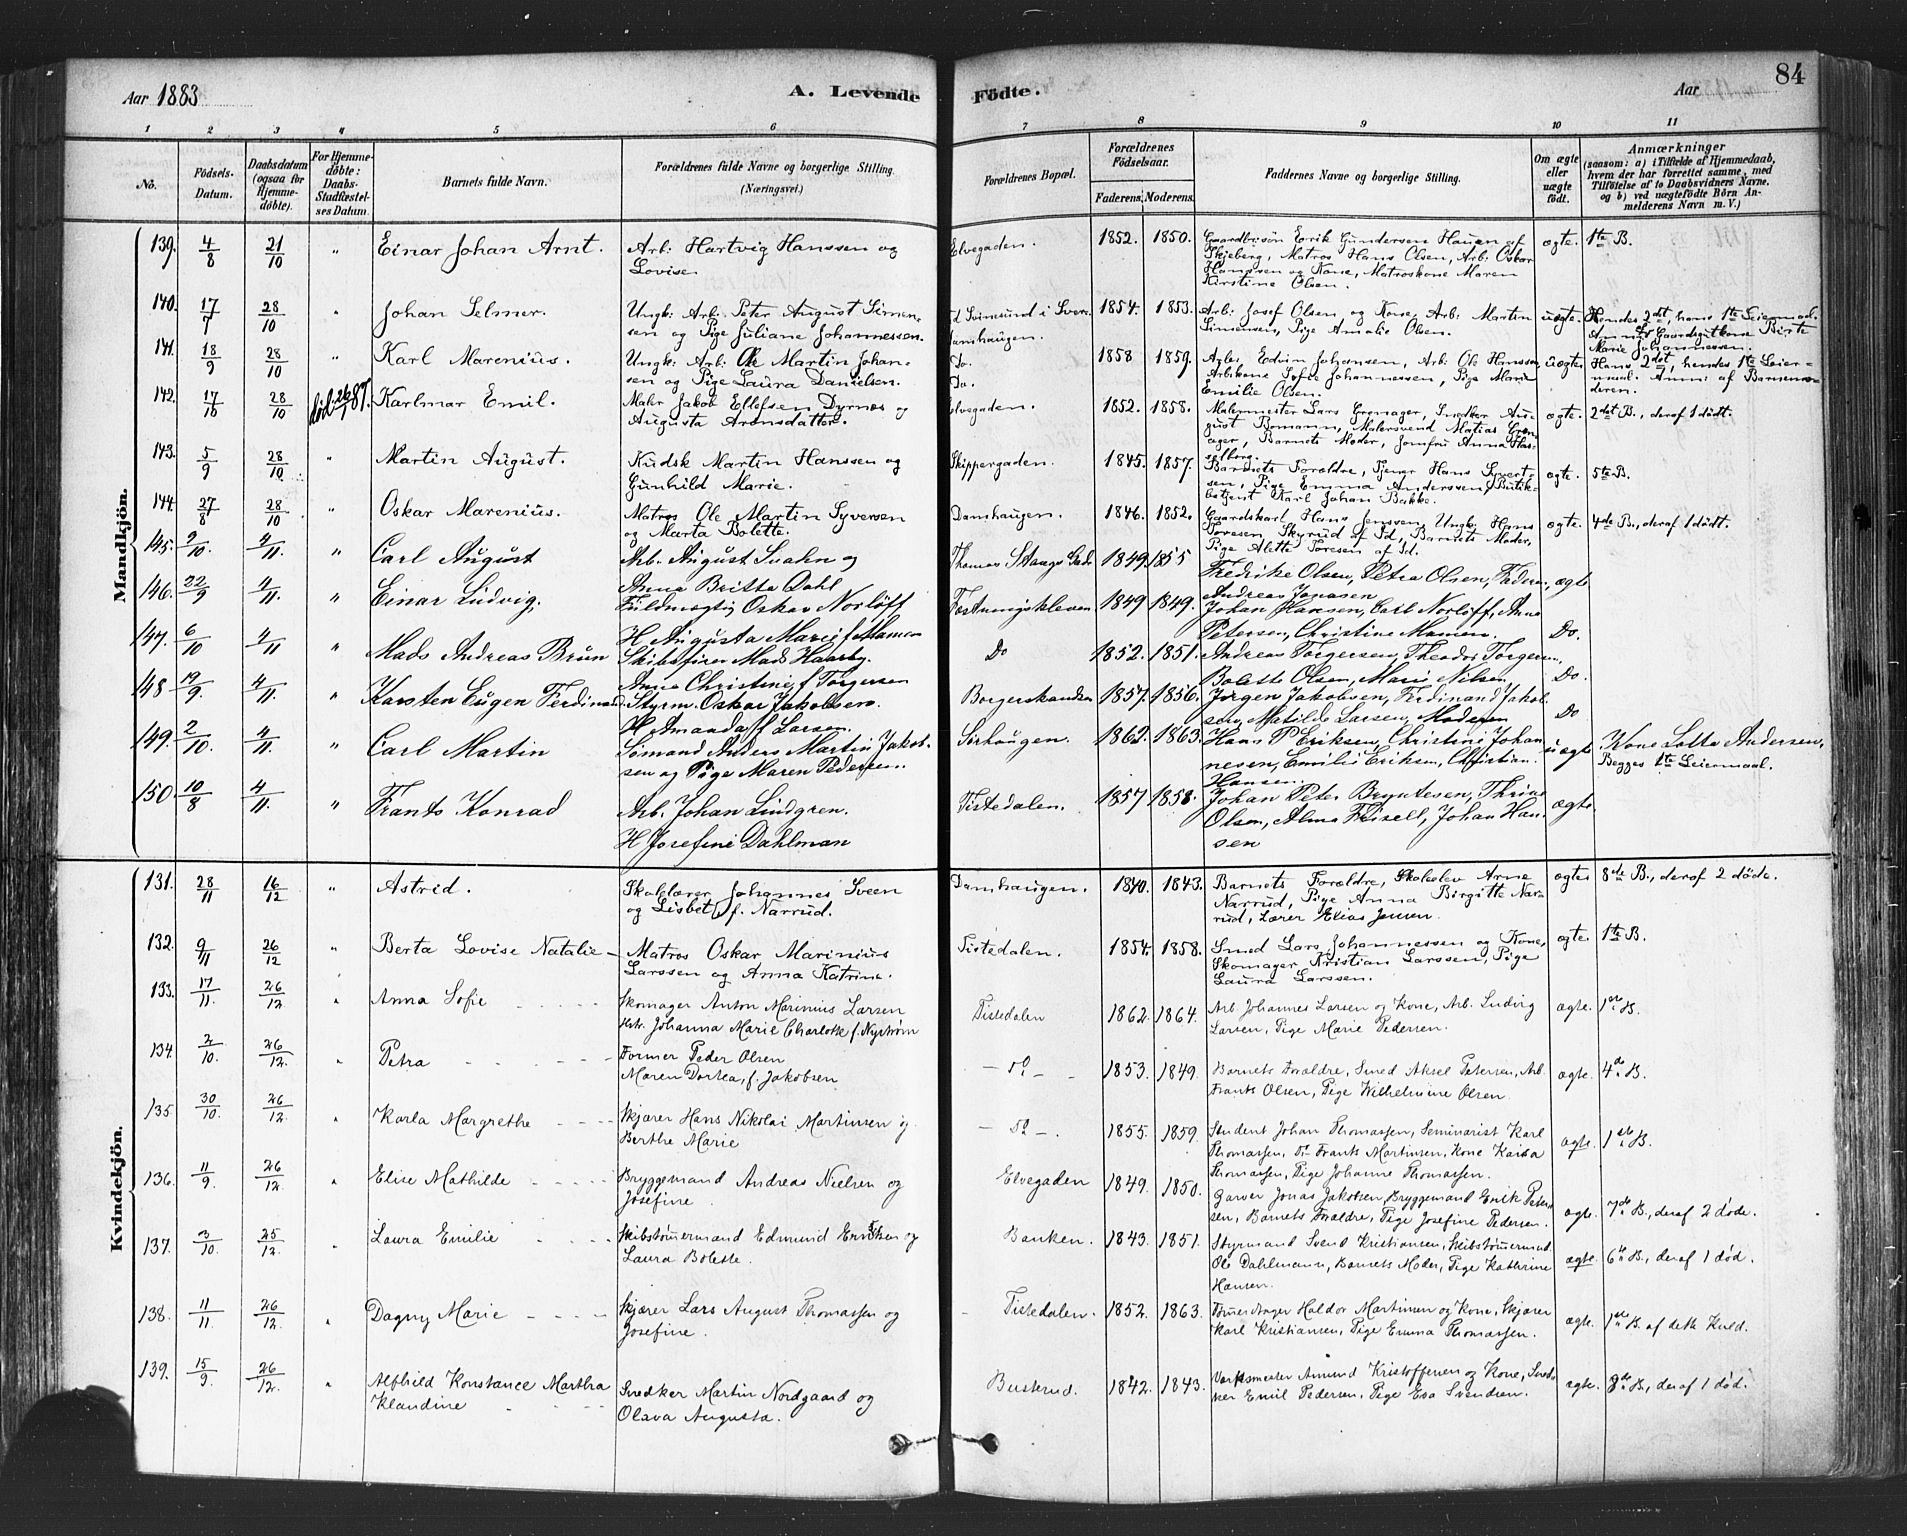 Aar 1883
A. Levende Födte.
Aar
84
1 2 3 4 5 6 7 8 9 10 11
No.
Födsels-Datum.
Daabsdatum (ogsaa for Hjemme-döbte).
For Hjemme-döbte: Daabs-Stadfæstel-ses Datum.
Barnets fulde Navn.
Forældrenes fulde Navne og borgerlige Stilling (Næringsvei.)
Forældrenes Bopæl.
Forældrenes Födselsaar.
Faderens. Moderens.
Faddernes Navne og borgerlige Stilling.
Om ægte eller uægte födt.
Anmærkninger
(saasom: a) i Tilfælde af Hjemmedaab, hvem der har forrettet samme, med Tilföielse af to Daabsvidners Navne, og b) ved uægtefödte Börn An-melderens Navn m. V.)
Mandkjön.
139. 4/8 21/10 " Einar Johan Arnt. Arb: Hartvig Hanssen og Lovise Elvegaden. 1852. 1850. Gaardbr:sön Erik Gundersen Hauen af Skjeberg, Matros Hans Olsen, Arb: Oskar Hanssen og Kone, Matroskone Maren Kirstine Olsen. ægte. 1te B.
140. 17/7 28/10 " Johan Selmer. Ungk: Arb: Peter August Simen-sen og Pige Juliane Johannessen. Svinesund i Sver. Damhaugen. 1854. 1853. Arb: Josef Olsen og Kone, Arb: Martin Simensen, Pige Amalie Olsen. uægte. Hendes 2det, hans 1te Leiermaal. Birte Marie Johannessen.
141. 18/9 28/10 " Karl Marenius. Ungk: Arb: Ole Martin Johan-sen og Pige Laura Danielsen. Do. Do. 1858 1859. Edvin Johansen, Arb: Ole Hanssen, Arb:kone Sofie Johannessen, Pige Marie Emilie Olsen. uægte. Hans 2det, hendes 1te Leier-maal. Anm: af Barnemo-deren.
142. 17/10 28/10 död 26/1 87. Karlmar Emil. Maler Jakob Ellefsen Dyrnes og Augusta Aronsdatter. Elvegaden. 1852. 1858. Malermester Lars Grönager, Snedker Au-gust Bomann, Malersvend Matias Grön-ager, Barnets Moder, Jomfru Anna Has-selborg. ægte. 2det B., deraf 1 dödt.
143. 5/9 28/10 " Martin August. Kudsk Martin Hanssen og Gunhild Marie. Skippergaden. 1845. 1857. Barnets Forældre, Tjener Hans Syvert-sen, Pige Emma Anderssen, Butik-betjent Karl Johan Bakke. ægte. 5te B.
144. 27/8 28/10 " Oskar Marenius. Matros Ole Martin Syversen og Marta Bolette. Damhaugen. 1846. 1852. Gaardskarl Hans Jenssen, Ungk: Hans Toresen, Skyrud af Id, Barnets Moder, Pige Alette Toresen af Id. ægte. 4de B., deraf 1 dödt.
145. 9/10. 4/11. " Carl August Arb. August Svahn og Anna Britta Dahl Thomas Stangs Gade 1849. 1855 Fredrike Olsen, Petra Olsen, Faderen, Andreas Jonasen ægte
146. 22/9 4/11. " Einar Ludvig. Fuldmægtig Oskar Norløff H. Augusta Marie f. Mamen Fæstningskleven 1849 1849. Johan Hansen, Carl Norløff, Anna Petersen, Christine Mamen. Do.
147. 6/10 4/11 " Mads Andreas Brun Skibsfører Mads Haarby. Anna Christine f. Torgersen Do 1852. 1851. Andreas Torgersen, Theodor Torgersen, Bolette Olsen, Marie Nilsen. Do.
148 19/9. 4/11. " Karsten Eugen Ferdinand. Styrm. Oskar Jakobsen. H. Amanda f. Larsen. Borgerskandsen 1857. 1856. Jørgen Jakobsen, Ferdinand Jakob-sen, Matilde Larsen, Moderen Do
149. 2/10. 4/11. " Carl Martin Sømand Anders Martin Jakob-sen og Pige Maren Pedersen. Sørhaugen. 1862. 1863. Hans P. Eriksen, Christine Johan-nesen, Emilie Eriksen, Christian Hansen. uægte Kone Lotte Andersen, Begges 1te Leiermaal.
150. 10/8 4/11. " Frants Konrad Arb. Johan Lindgren. H Josefine Dahlman Tistedalen. 1857 1858. Johan Peter Bryntesen, Thrine Olsen, Alma Frisell, Johan Han-sen ægte
Kvindekjön.
131. 28/11 16/12 " Astrid. Skolelærer Johannes Sveen og Lisbet, f. Narrud. Damhaugen. 1840. 1843. Barnets Forældre, Skoleelev Arne Narrud, Pige Anna Birgitte Nar-rud, Lærer Elias Jensen. ægte 8de B., deraf 2 döde.
132. 9/11 26/12 " Berta Lovise Natalie - Matros Oskar Marinius Larssen og Anna Katrine. Tistedalen. 1854. 1858. Smed Lars Johannessen og Kone, Skomager Kristian Larssen, Pige Laura Larssen. ægte 1te B.
133. 17/11. 26/12 " Anna Sofie Skomager Anton Marinius Larsen Hstr. Johanna Marie Charlotte f. Nystrøm Tistedalen 1862. 1864. Arb. Johannes Larsen og Kone, Arb. Ludvig Larsen, Pige Marie Pedersen. ægte. 1ste B.
134. 2/10. 26/12. " Petra Former Peder Olsen Maren Dortea, f. Jakobsen - Do - 1853. 1849. Barnets Forældre, Smed Aksel Petersen, Arb. Frants Olsen, Pige Wilhelmine Olsen. ægte. 4de B.
135. 30/10. 26/12. " Karla Margrethe Skjærer Hans Nikolai Martinsen og Berthe Marie - Do -. 1855. 1859. Student Johan Thomassen, Seminarist Karl Thomassen, Do Frants Martinsen, Kone Karen Thomassen, Pige Johanne Thomassen. ægte. 1ste B.
136. 11/9. 26/12. " Elise Mathilde Bryggemand Andreas Nielsen og Josefine. Elvegaden 1849. 1850. Garver Jonas Jakobsen, Bryggemand Erik Peter-sen, Barnets Forældre, Pige Josefine Pedersen. ægte. 7de B., deraf 2 døde.
137. 3/10. 25/12. " Laura Emilie Skibstømmermand Edmund Eriksen og Laura Bolette. Banken. 1843. 1851. Styrmand Svend Kristiansen, Skibstømmermand Ole Dahlmann, Barnets Moder, Pige Kathrine Hansen. ægte. 6te B., deraf 1 død.
138. 11/11. 26/12. " Dagny Marie Skjærer Lars August Thomassen og Josefine. Tistedalen. 1852. 1863. Haldor Martinsen og Kone, Skjærer Karl Kristiansen, Pige Emma Thomassen. ægte. 1ste B. af dette Kuld.
139. 15/9. 26/12. " Alfhild Konstance Martha Klandine Snedker Martin Nordgaard og Olava Augusta. Busterud. 1842. 1843. Værksmester Amund Kristoffersen og Kone, Sned-ker Emil Pedersen, Pige Eva Svendsen. ægte. 8de B., deraf 1 død.